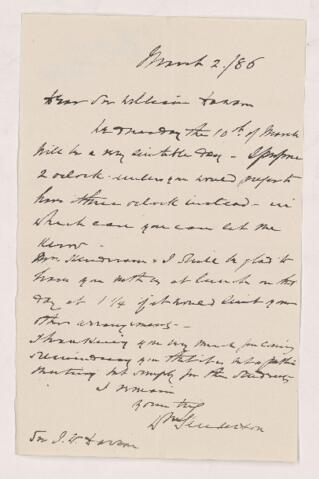 March 2./86
Dear Sir William Dawson
Wednesday the 10th of March
will be a very suitable day - I propose
2 oclock - unless you would prefer to
have three oclock instead - in
which case you can let me
know -
Mrs. Henderson & I shall be glad to
have you with us at lunch on that
day at 1 1/4 if it would suit your
other arrangements -
Thanking you very much for
you that it is not a public
meeting but simply for the Students
I remain
yours truly
Wm Henderson
Sir J. W. Dawson